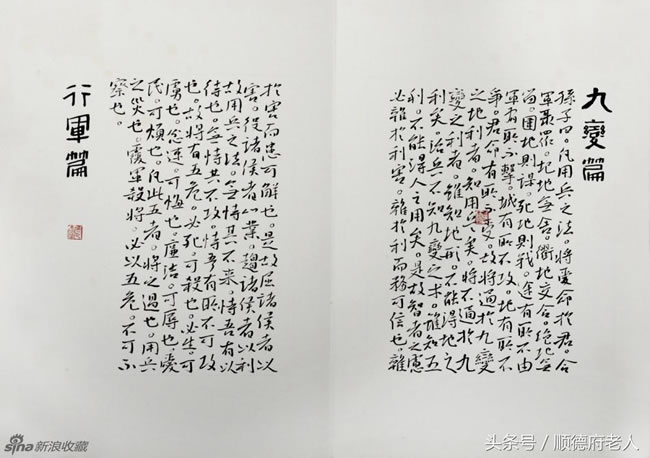 九變篇
孫子曰。凡用兵之法。將受命於君。合
軍聚眾。圮地無舍。衢地交合。絕地無
留。圍地則謀。死地則戰。途有所不由
軍有所不擊。城有所不攻。地有所不
爭。君命有所不受。故將通於九變
之地利者。知用兵矣。將不通於九
變之利者。雖知地形。不能得地之
利矣。治兵不知九變之术。雖知五
利。不能得人之用矣。是故智者之慮
必雜於利害。雜於利而務可信也。雜
於害而患可解也。是故屈諸侯者以
害。役諸侯者以業。趨諸侯者以利
故用兵之法。無恃其不來。恃吾有以
待也。無恃其不攻。恃吾有所不可攻
也。故將有五危。必死。可殺也。必生。可
虜也。忿速。可侮也。廉潔。可辱也。愛
民。可煩也。凡此五者。將之過也。用兵
之災也。覆軍殺將。必以五危。不可不
察也。
行軍篇
sina 新浪收藏
头条号 / 顺德府老人